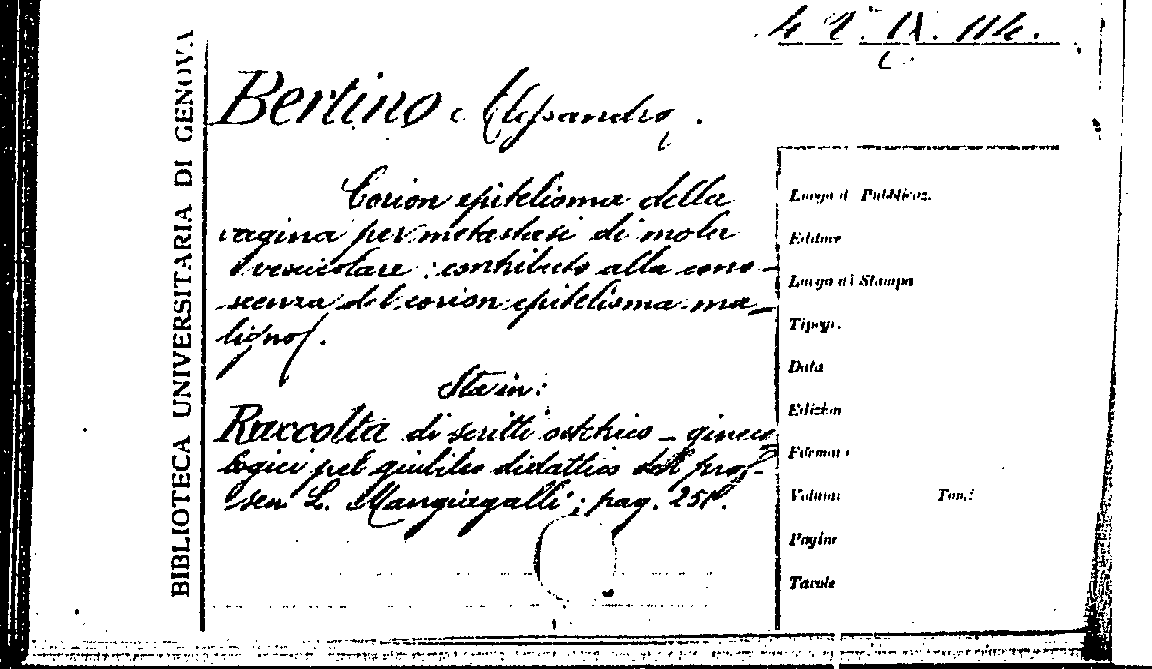 4 4°. IX. 114.
BIBLIOTECA UNIVERSITARIA DI GENOVA
Bertino Alessandro.
Corion epitelioma della
vagina per metastasi di mola
vescicolare: contributo alla cono-
scenza del corion epitelioma ma-
ligno.
Sta in:
Raccolta di scritti ostetrico-gineco
logici pel giubileo didattico del prof.
sen. L. Mangiagalli; pag. 251.
Luogo di Pubblicaz.
Editore
Luogo di Stampa
Tipogr.
Data
Edizion
Formato
Volumi Tom.:
Pagine
Tavole